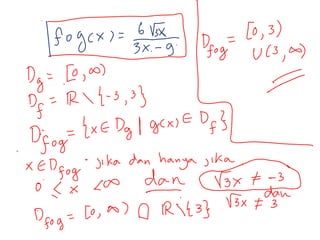 fog(x) = 6√3x / 3x - 9
D_fog = [0, 3) ∪ (3, ∞)
D_g = [0, ∞)
D_f = ℝ \ {-3, 3}
D_fog = {x ∈ D_g | g(x) ∈ D_f}
x ∈ D_fog. jika dan hanya jika
0 ≤ x < ∞ dan √3x ≠ -3 dan √3x ≠ 3
D_fog = [0, ∞) ∩ ℝ \ {3}